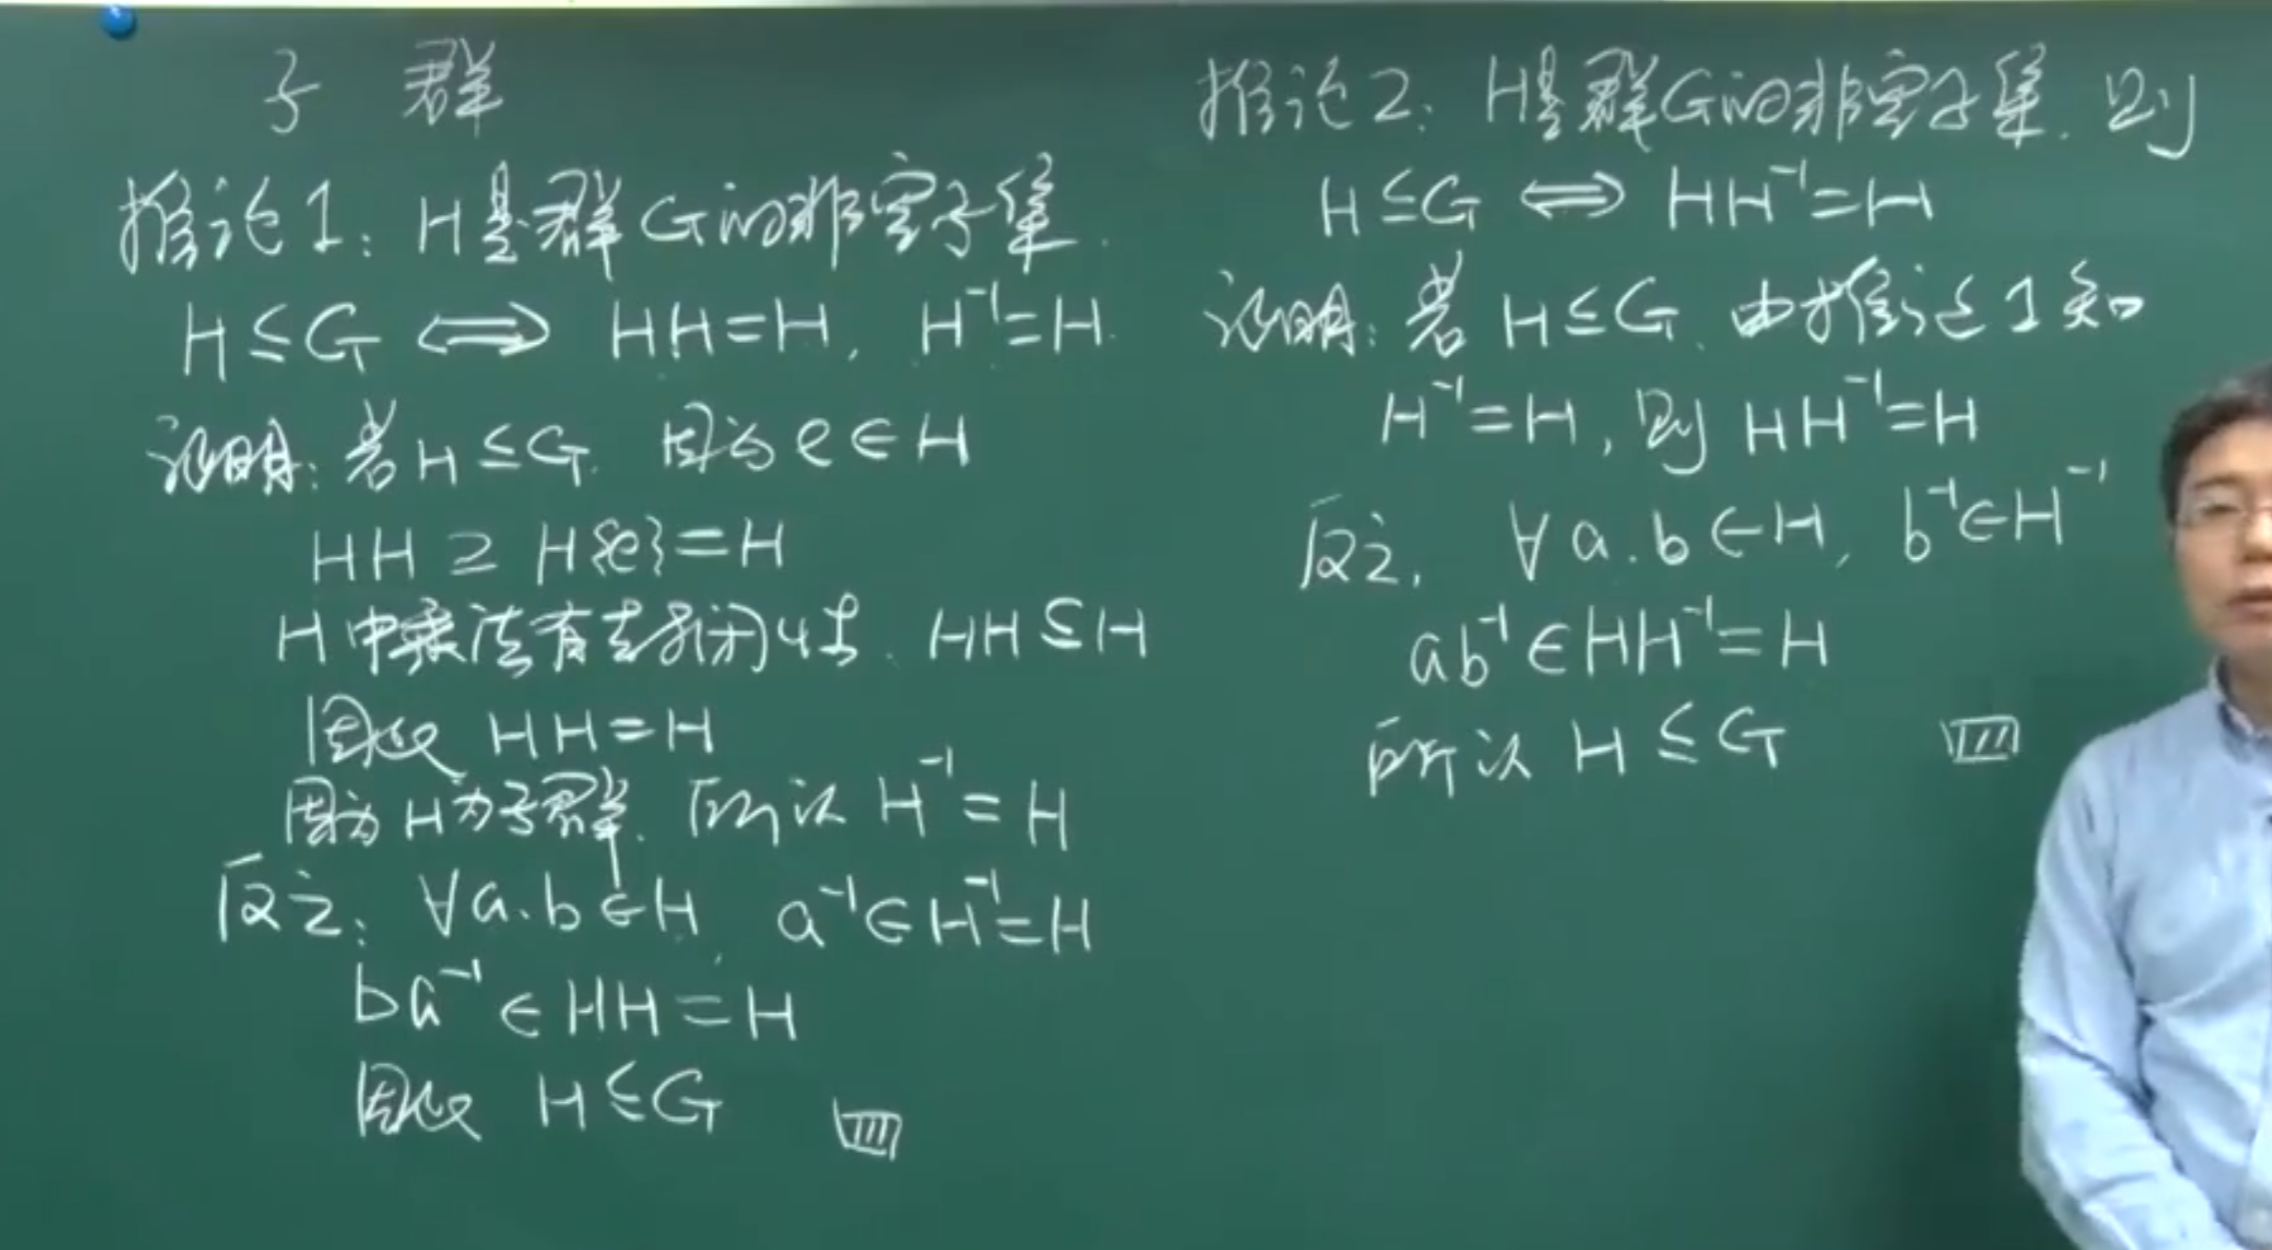 子 群
推论1: H是群G的非空子集.
H≤G ⟺ HH=H, H⁻¹=H.
证明: 若H≤G. 因为e∈H
HH ⊇ H{e}=H
H中乘法有封闭性. HH⊆H
因此 HH=H
因为H为子群. 所以 H⁻¹=H
反之: ∀a.b∈H, a⁻¹∈H⁻¹=H
ba⁻¹∈HH=H
因此 H≤G
推论2: H是群G的非空子集. 则
H≤G ⟺ HH⁻¹=H
证明: 若 H≤G. 由推论1知
H⁻¹=H, 则 HH⁻¹=H
反之, ∀a.b∈H, b⁻¹∈H⁻¹
ab⁻¹∈HH⁻¹=H
所以 H≤G